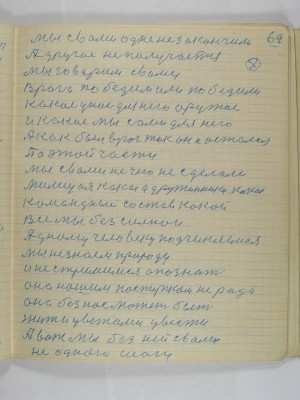 69
мы с вами одне незакончили
А другое не получается
мы говорим с вами
8
Врага победим или победили
какое у нас для него оружие
и какие мы сами для него
А как был враг так он и остался
По этой части
мы с вами нечего не сделали
милиция какая дружинники какие
командный состав какой
Все мы без силной
Адному человеку подчиняемся
мы незнаем природу
и не стримимся опознат
она нашим поступкам не рада
она без нас может быт
жит и цветами цвести
А вот мы без ней с вами
не одного шагу